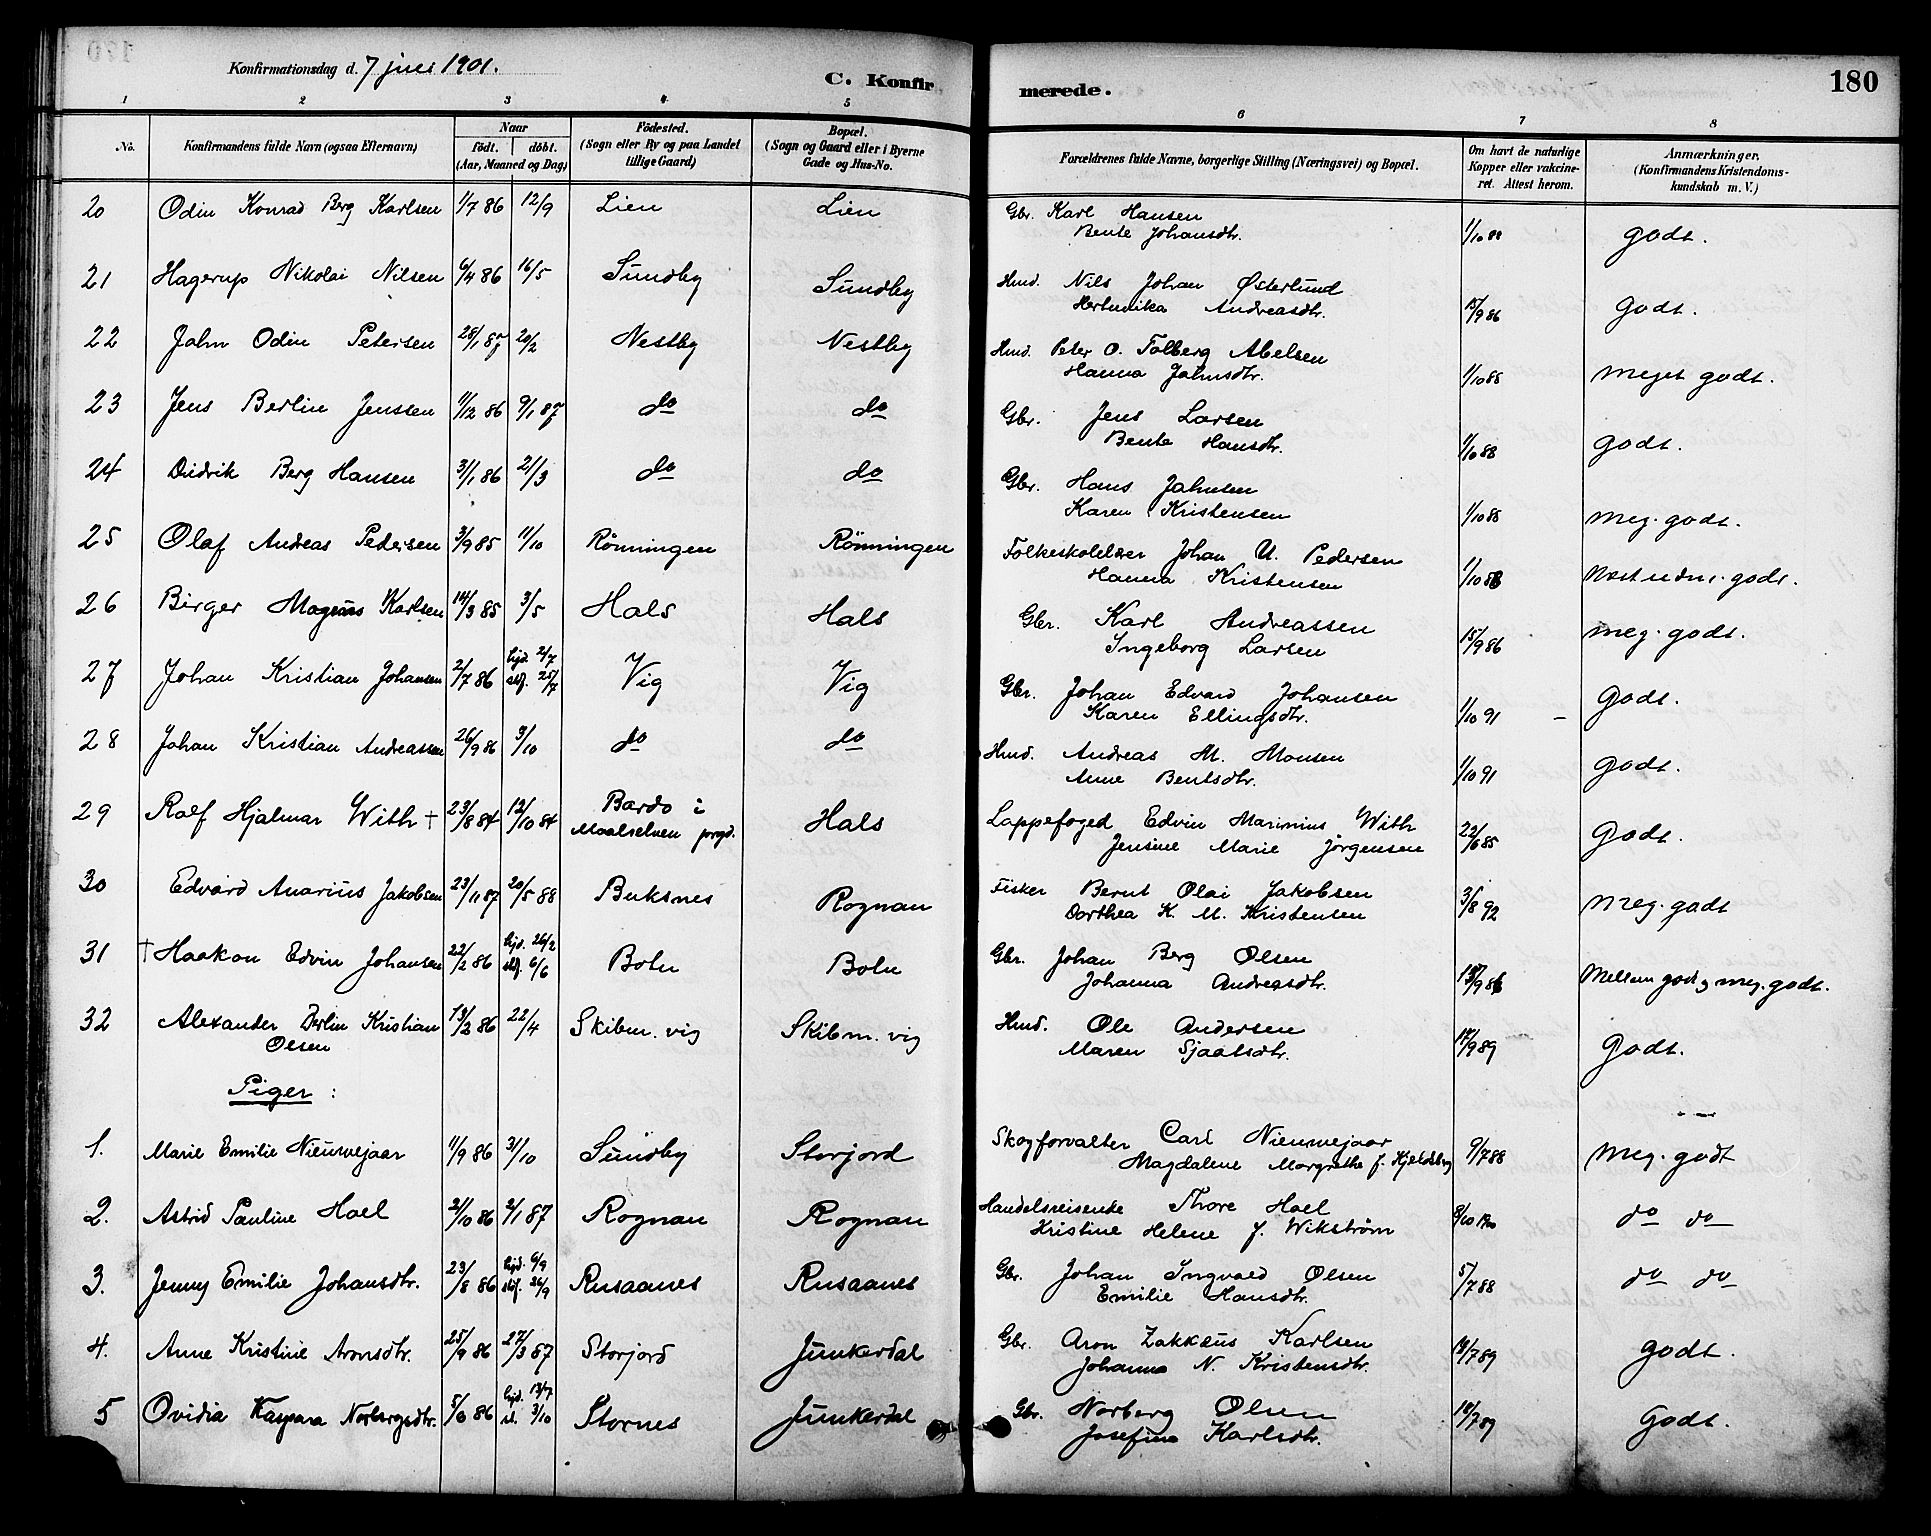 Konfirmationsdag d. 7 juli 1901.
C. Konfirmerede.
180
1 2 3 4 5 6 7 8
No. | Konfirmandens fulde Navn (ogsaa Efternavn) | Naar født. døbt. (Aar, Maaned og Dag) | Fødested. (Sogn eller By og paa Landet tillige Gaard) | Bopæl. (Sogn og Gaard eller i Byerne Gade og Hus-No. | Forældrenes fulde Navne, borgerlige Stilling (Næringsvei) og Bopæl. | Om havt de naturlige Kopper eller vakcineret. Attest herom. | Anmærkninger. (Konfirmandens Kristendomskundskab m. V.)
20 Odin Konrad Berg Karlsen 1/7 86 12/9 Lien Lien Gbr. Karl Hansen 1/10 88 godt.
Bente Johansdtr.
21 Hagerup Nikolai Nilsen 6/4 86 16/5 Sundby Sundby Hmd. Nils Johan Østerlund 15/9 86 godt.
Andreasdtr.
22 Jahn Odin Petersen 28/1 87 20/2 Nestby Nestby Hmd. Peter O. Tolberg Abelsen 1/10 88 meget godt.
Hanna Jahnsdtr.
23 Jens Berlin Jenssen 11/12 86 9/1 87 do do Gbr. Jens Larsen 1/10 88 godt.
Bente Hansdtr.
24 Didrik Berg Hansen 3/1 86 21/3 do do Gbr. Hans Jahnsen 1/10 88 meg. godt.
Karen Kristensen
25 Olaf Andreas Pedersen 3/9 85 11/10 Rönningen Rönningen Folkeskolelær Johan U. Pedersen 1/10 88 Næst udm. godt.
Hanna Kristensen
26 Birger Magnus Karlsen 14/3 85 3/5 Hals Hals Gbr. Karl Andreassen 15/9 86 meg. godt.
Ingeborg Larsen
27 Johan Kristian Johansen 2/7 86 hjd. 2/7 stf. 25/7 Vig Vig Gbr. Johan Edvard Johansen 1/10 91 – godt.
Karen Ellingsdtr.
28 Johan Kristian Andreassen 26/9 86 3/10 do do Hmd. Andreas M. Monsen 1/10 91 godt.
Anne Bentsdtr.
29 Rolf Hjalmar With † 23/8 84 12/10 84 Bardo i Maalselven prgd. Hals Lappefoged Edvin Marinius With 22/6 85 godt.
Jensine Marie Jørgensen
30 Edvard Anarius Jakobsen 23/11 87 20/5 88 Buksnes Rognan Fisker Bernt Olai Jakobsen 3/8 92 meg. godt
Dorthea K. M. Kristensen
31 † Haakon Edvin Johansen 22/2 86 hjd. 26/2 stf. 6/6 Botn Botn Gbr. Johan Berg Olsen 15/9 86 Mellem godt og meg. godt.
Johanna Andreasdtr.
32 Alexander Berlin Kristian 13/2 86 22/4 Skibm. vig Skibm. vig Hmd. Ole Andersen 17/9 89 Godt.
Olsen Maren Sjaalsdtr.
Piger :
1. Marie Emilie Nieuwejaar 11/9 86 31/10 Sundby Storjord Skogforvalter Carl Nieuwejaar 9/7 88 meg. godt
Magdalene Margrethe f. Kjeldsberg
2. Astrid Pauline Hoel 21/10 86 2/1 87 Rognan Rognan Handelsreisende Thore Hoel 8/10 1900 do do
Kristine Helene f. Wikstrøm
3. Jenny Emilie Johansdtr. 23/8 86 hjd. 6/9 stf. 26/9 Rusaanes Rusaanes Gbr. Johan Ingvald Olsen 5/7 88 do do
Emilie Hansdtr.
4. Anne Kristine Aronsdtr. 25/9 86 27/3 87 Storjord Junkerdal Gbr. Aron Zakkæus Karlsen 18/7 89 godt.
Johanna N. Kristensdtr.
5 Ovidia Kaspara Norbergsdtr. 5/6 86 hjd. 13/7 st. 3/10 Stornes Junkerdal Gbr. Norberg Olsen 18/7 89 Godt.
Josefine Karlsdtr.